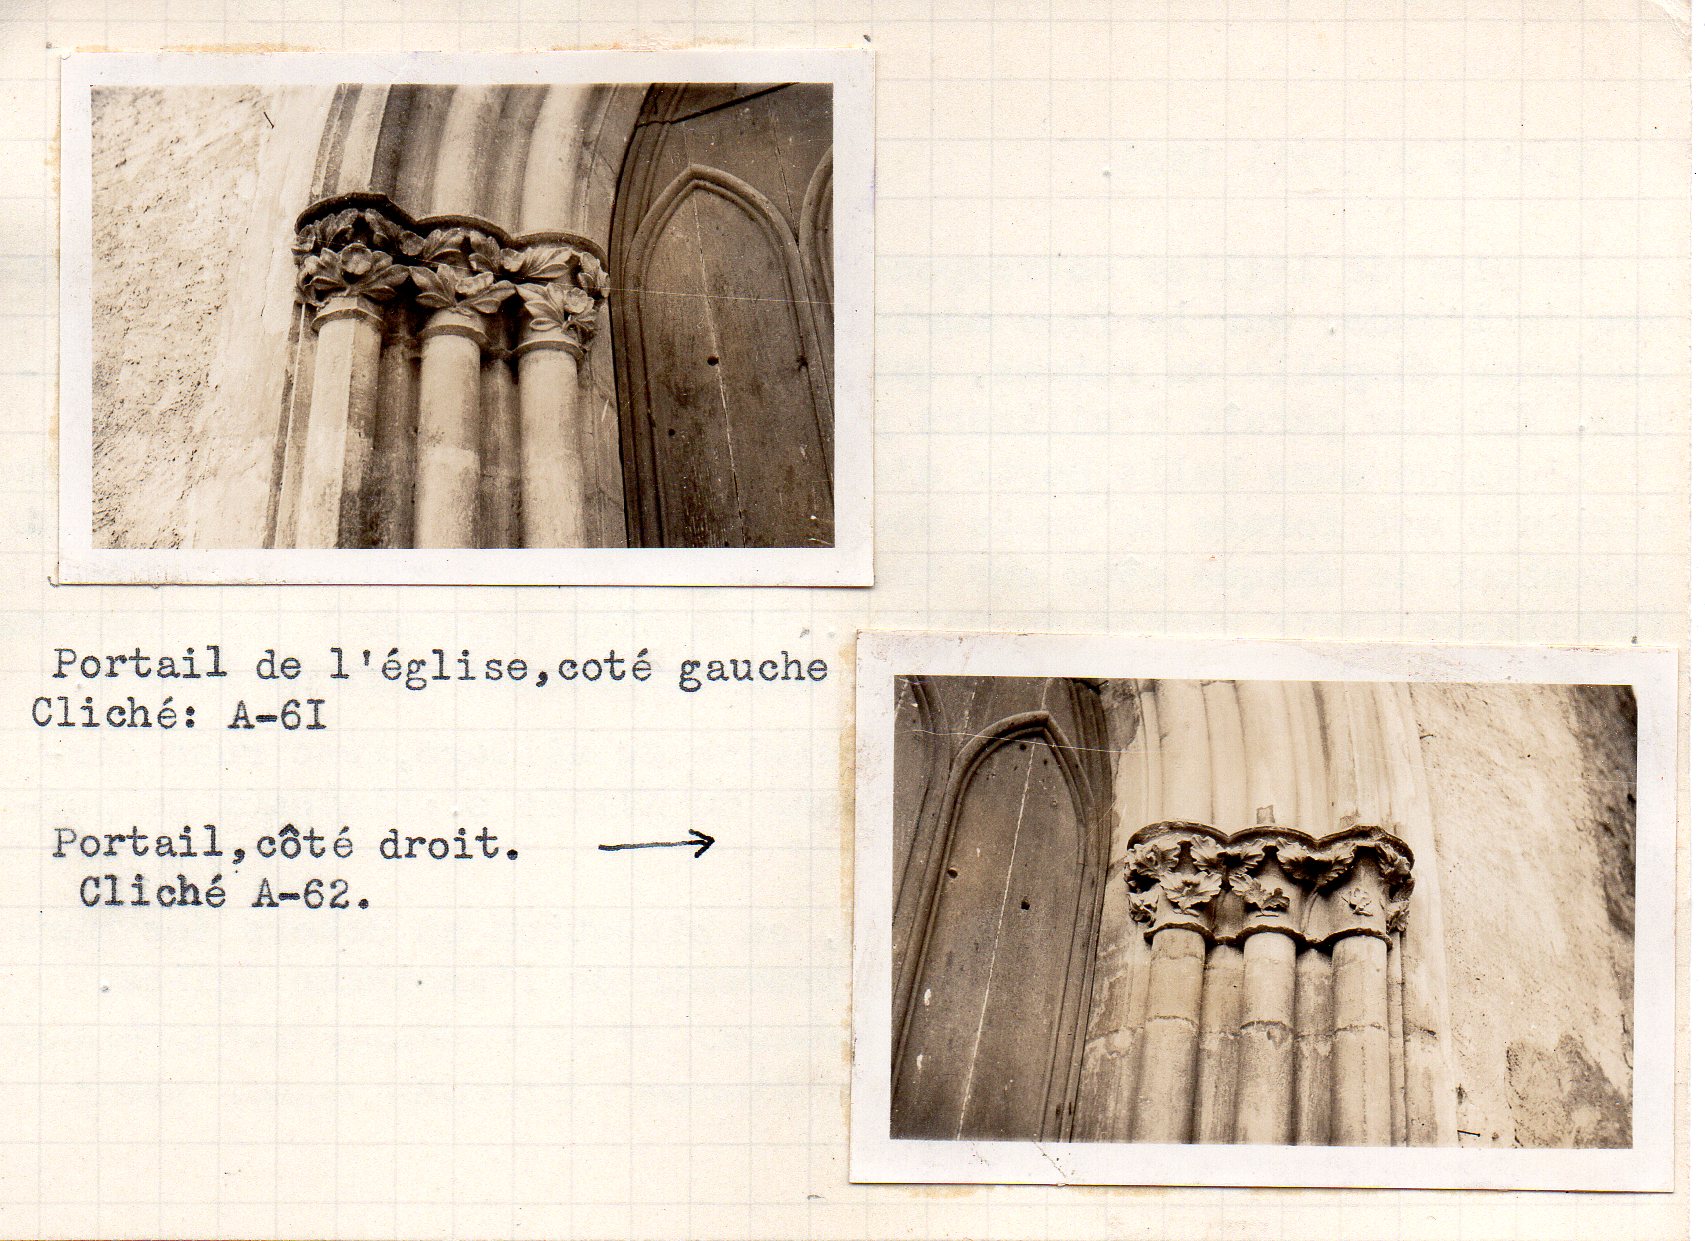 Portail de l'église,coté gauche
Cliché: A-6I
Portail,côté droit.
Cliché A-62.